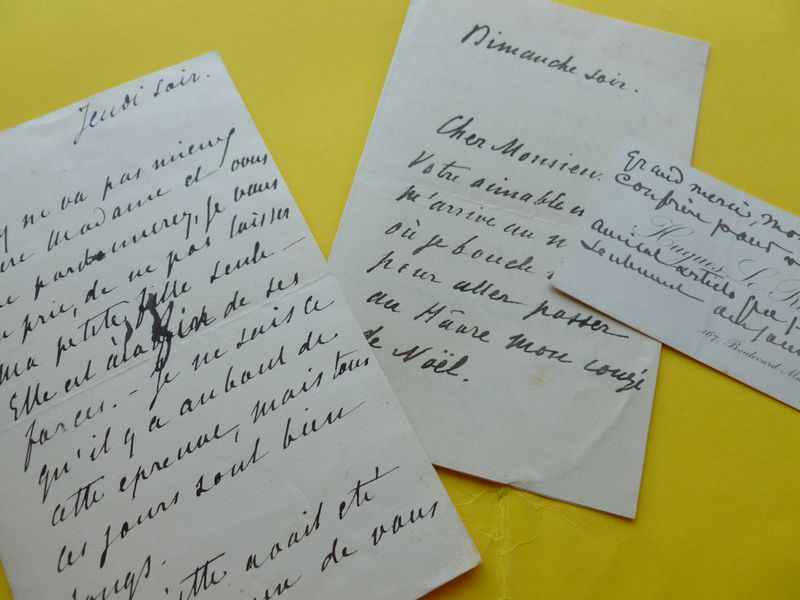 Jeudi soir.
y ne va pas mieux
Madame et vous
pardonnerez, je vous
prie, de ne pas laisser
ma petite fille seule —
Elle est à de ses
forces. — Je ne sais ce
qu'il y a au bout de
cette epreuve, mais tous
ces jours sont bien
longs.
avait été
de vous
Dimanche soir.
Cher Monsieur
Votre aimable
m'arrive au
où je boucle
pour aller passer
au Hâvre mon congé
de Noël.
Grand merci, mon
confrère pour
Hugues Le R
amical article
aujour
167, Boulevard Ma